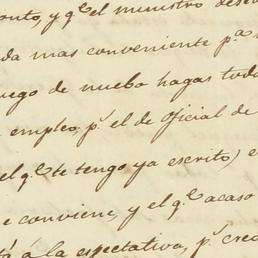 onto, y q.e el ministro dese
da mas conveniente p.a
uego de nuebo hagas todo
empleo, p.r el de oficial de
el q.e te tengo ya escrito) e
e conviene, y el q.e acaso
tá á la espectativa, p.r creo